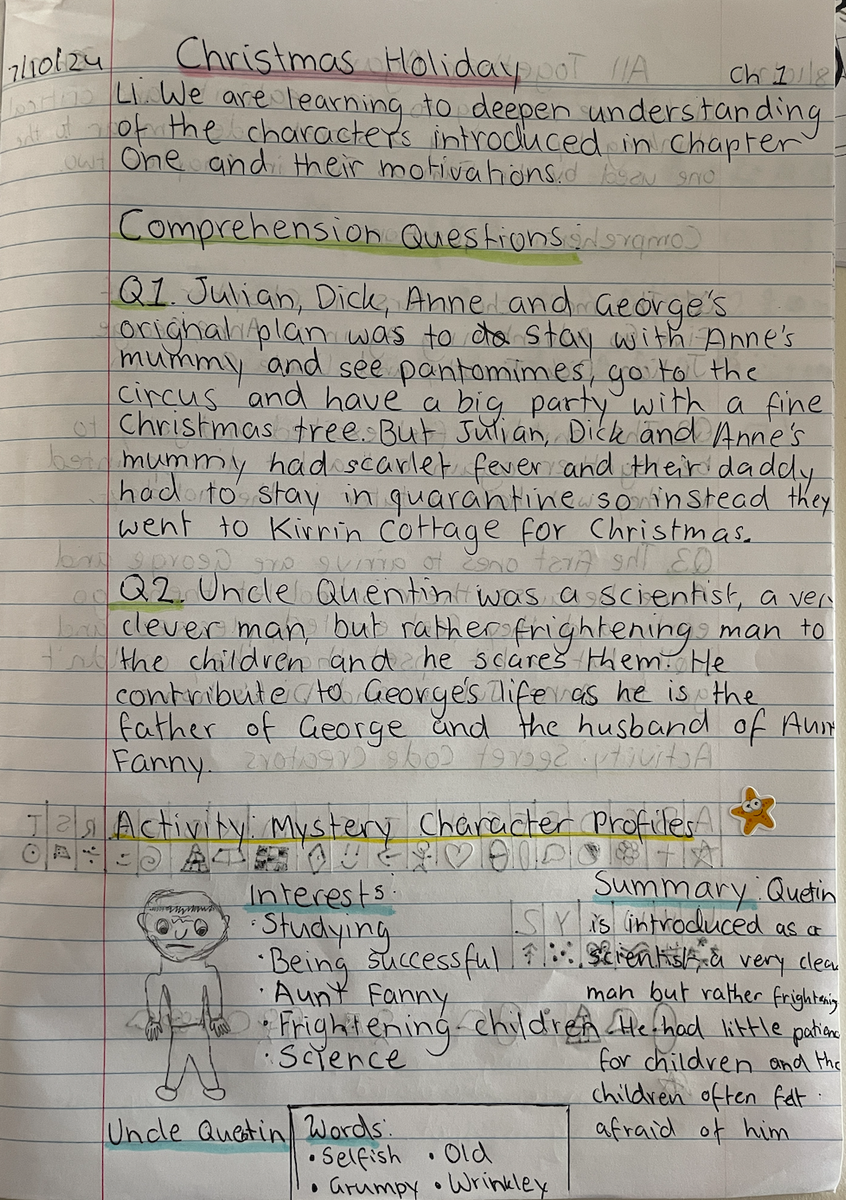 7/10/24 Christmas Holiday Ch 1
LI. We are learning to deepen understanding
of the characters introduced in Chapter
One and their motivations.
Comprehension Questions:
Q1. Julian, Dick, Anne and George's
orignal plan was to stay with Anne's
mummy and see pantomimes, go to the
circus and have a big party with a fine
Christmas tree. But Julian, Dick and Anne's
mummy had scarlet fever and their daddy
had to stay in quarantine so instead they
went to Kirrin Cottage for Christmas.
Q2. Uncle Quentin was a scientist, a ver
clever man, but rather frightening man to
the children and he scares them. He
contribute to George's life as he is the
father of George and the husband of Aun
Fanny.
Activity: Mystery Character Profiles
Interests:
• Studying
• Being successful
• Aunt Fanny
• Frightening children
• Science
Summary: Quetin
is introduced as a
scientist, a very clea
man but rather frightening
He had little patienc
for children and the
children often felt
afraid of him
Uncle Quetin
Words:
• Selfish • Old
• Grumpy • Wrinkley